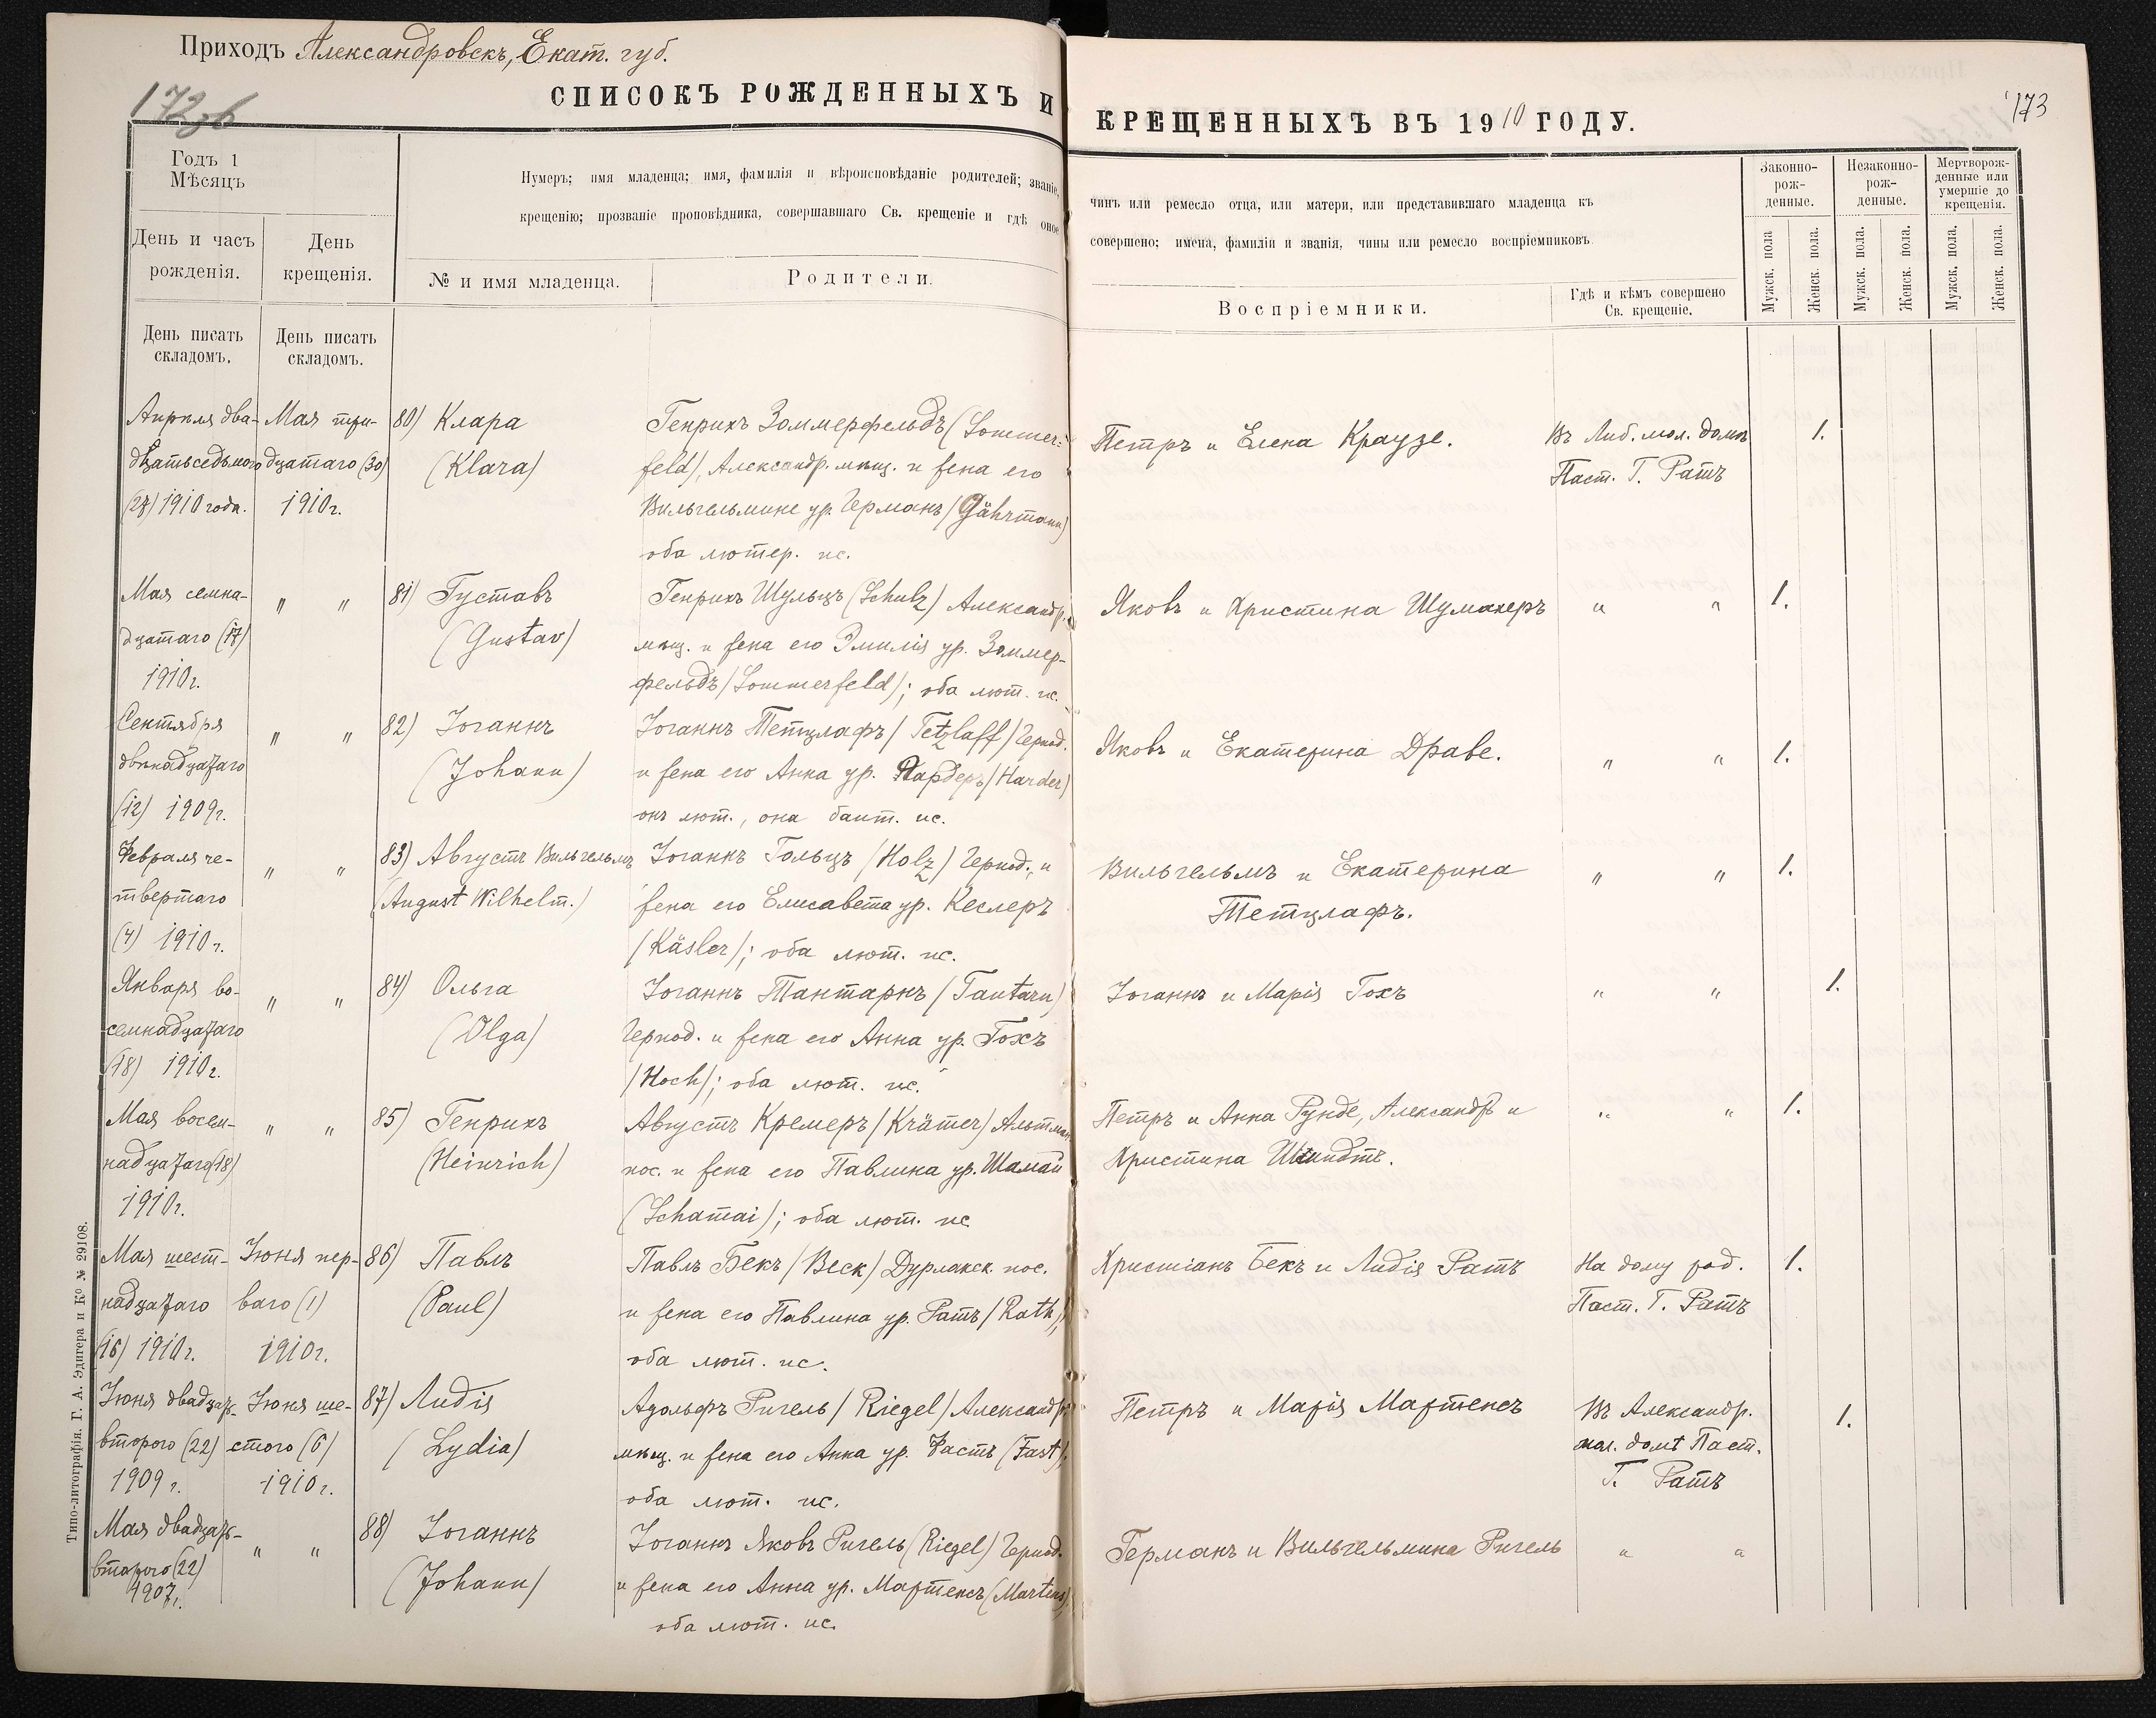 Приходъ Александровскъ, Екат. губ.
172 об
173
СПИСОКЪ РОЖДЕННЫХЪ И
КРЕЩЕННЫХЪ ВЪ 1910 ГОДУ.
Годъ 1
Мѣсяцъ
День и часъ
рожденія.
День
крещенія.
День писать
складомъ.
День писать
складомъ.
Нумеръ; имя младенца; имя, фамилія и вѣроисповѣданіе родителей; званіе,
крещенію; прозваніе проповѣдника, совершавшаго Св. крещеніе и гдѣ оное
№ и имя младенца.
Родители.
чинъ или ремесло отца, или матери, или представившаго младенца къ
совершено; имена, фамиліи и званія, чины или ремесло воспріемниковъ.
Воспріемники.
Гдѣ и кѣмъ совершено
Св. крещеніе.
Законно-
рож-
денные.
Незаконно-
рож-
денные.
Мертворож-
денные или
умершіе до
крещенія.
Мужск. пола
Женск. пола.
Мужск. пола.
Женск. пола.
Мужск. пола.
Женск. пола.
Апрѣля два-
дцатьседьмого
(27) 1910 года.
Мая три-
дцатаго (30)
1910г.
80) Клара
(Klara)
Генрихъ Зоммерфельдъ (Sommer-
feld), Александр. мѣщ. и жена его
Вильгельмине ур. Германъ (Gährmann)
оба лютер. ис.
Петръ и Елена Краузе.
Въ Либ. мол. домѣ
Паст. Г. Ратъ
1.
Мая семна-
дцатаго (17)
1910г.
" "
81) Густавъ
(Gustav)
Генрихъ Шульцъ (Schulz) Александр.
мѣщ. и жена его Эмилія ур. Зоммер-
фельдъ (Sommerfeld); оба лют. ис.
Яковъ и Христина Шумахеръ
" "
1.
Сентября
двѣнадцатаго
(12) 1909г.
" "
82) Іоганнъ
(Johann)
Іоганнъ Тетцлафъ (Tetzlaff) Чернод.
и жена его Анна ур. Гардеръ (Harder)
онъ лют., она бапт. ис.
Яковъ и Екатерина Драве.
" "
1.
Февраля че-
твертаго
(4) 1910г.
" "
83) Августъ Вильгельмъ
(August Wilhelm.)
Іоганнъ Гольцъ (Holz) Чернод., и
жена его Елисавета ур. Кеслеръ
(Käsler); оба лют. ис.
Вильгельмъ и Екатерина
Тетцлафъ.
" "
1.
Января во-
семнадцатаго
(18) 1910г.
" "
84) Ольга
(Olga)
Іоганнъ Тантарнъ (Tantarn)
Чернод. и жена его Анна ур. Гохъ
(Hoch); оба лют. ис.
Іоганнъ и Марія Гохъ
" "
1.
Мая восем-
надцатаго (18)
1910г.
" "
85) Генрихъ
(Heinrich)
Августъ Кремеръ (Krämer) Альтман.
пос. и жена его Павлина ур. Шамай
(Schamai); оба лют. ис
Петръ и Анна Рунде, Александръ и
Христина Шмидтъ.
" "
1.
Мая шест-
надцатаго
(16) 1910г.
Іюня пер-
ваго (1)
1910г.
86) Павлъ
(Paul)
Павлъ Бекъ (Beck) Дурлахск. пос.
и жена его Павлина ур. Ратъ (Rath);
оба лют. ис.
Христіанъ Бекъ и Лидія Ратъ
На дому род.
Паст. Г. Ратъ
1.
Іюня двадцать-
второго (22)
1909 г.
Іюня ше-
стого (6)
1910г.
87) Лидія
(Lydia)
Адольфъ Ригель (Riegel) Александр.
мѣщ. и жена его Анна ур. Фастъ (Fast),
оба лют. ис.
Петръ и Марія Мартенсъ
Въ Александр.
мол. домѣ Паст.
Г. Ратъ
1.
Мая двадцать-
второго (22)
1907г.
" "
88) Іоганнъ
(Johann)
Іоганнъ Яковъ Ригель (Riegel) Чернод.
и жена его Анна ур. Мартенсъ (Martens)
оба лют. ис.
Германъ и Вильгельмина Ригель
" "
Типо-литографія. Г. А. Эдигера и Ко № 29108.